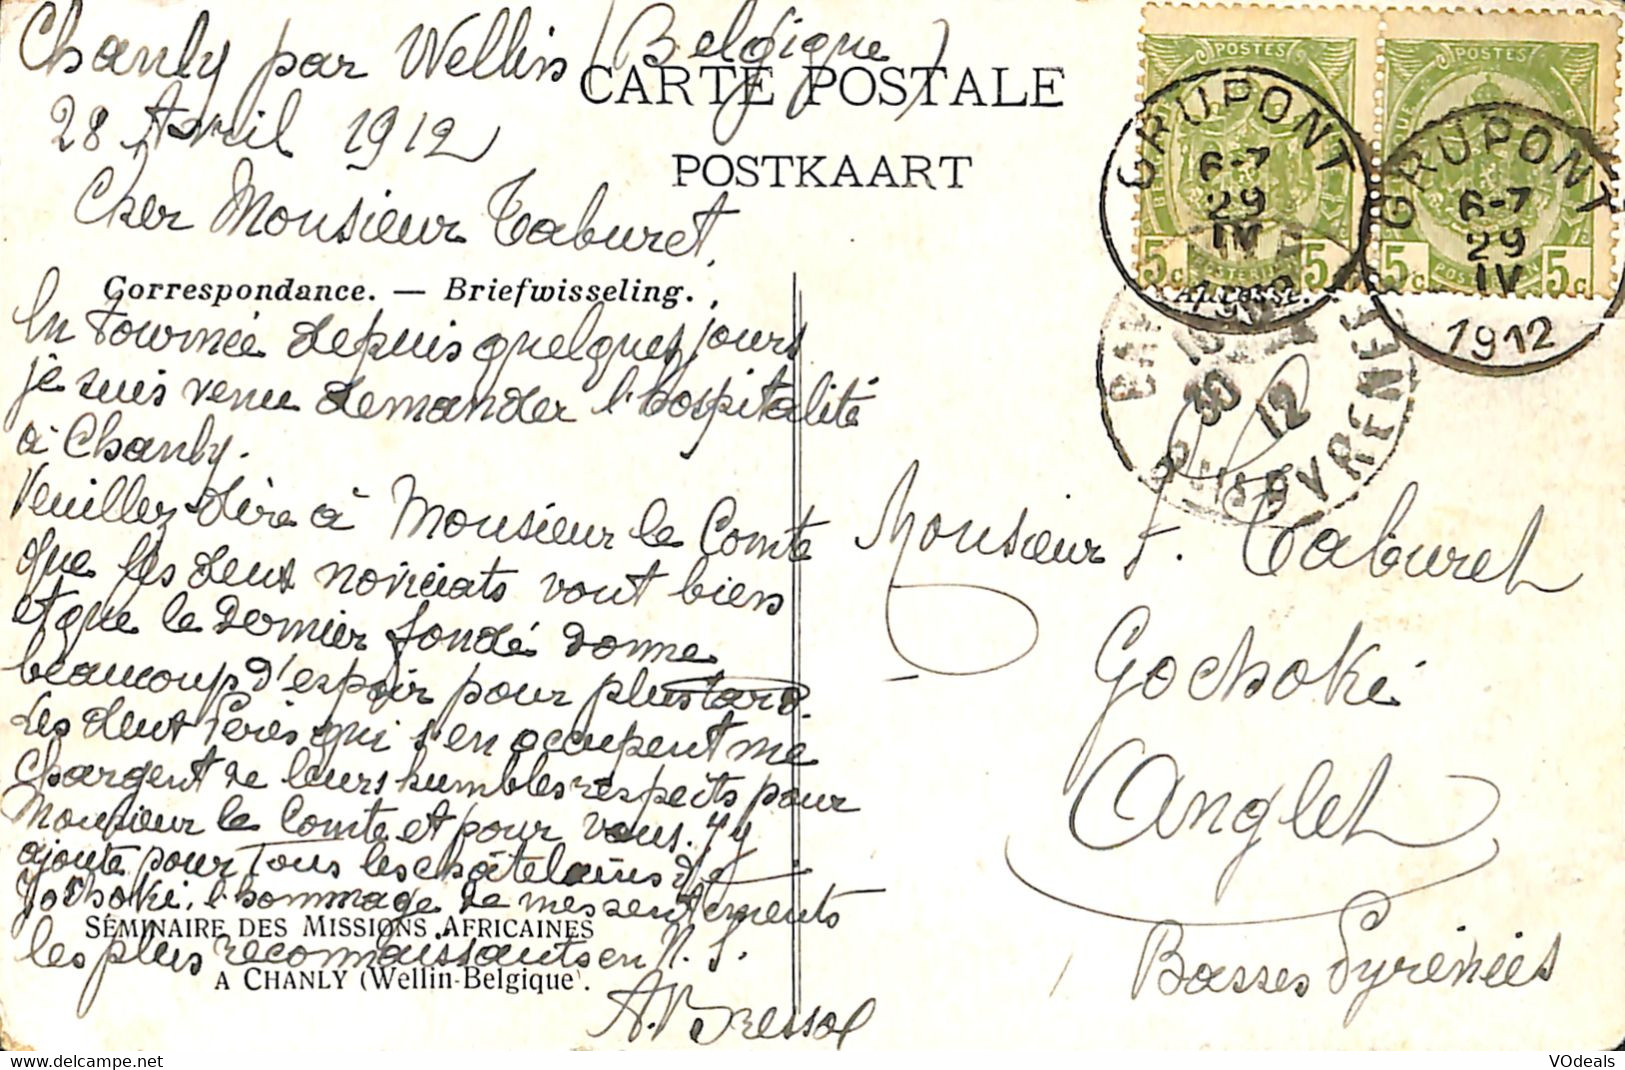 Chanly par Wellin (Belgique)
CARTE POSTALE
28 Avril 1912
POSTKAART
Cher Monsieur Taburet,
Correspondance. — Briefwisseling.
En tournée depuis quelques jours
je suis venu demander l'hospitalité
à Chanly.
Veuillez dire à Monsieur le Comte
que les deux noviciats vont bien
et que le dernier fondé donne
beaucoup d'espoir pour plus tard.
Les deux Pères qui s'en occupent me
chargent de leurs humbles respects pour
Monsieur le Comte et pour vous. J'y
ajoute pour tous les châtelains de
Gochoki, l'hommage de mes sentiments
SÉMINAIRE DES MISSIONS AFRICAINES
les plus reconnaissants en N. S.
A CHANLY (Wellin-Belgique).
A. Bressol
POSTES
5c POSTERIJEN 5c
POSTES
5c POSTERIJEN 5c
GRUPONT
6-7
29
IV
1912
GRUPONT
6-7
29
IV
1912
Adresse.
30
12
PYRENEES
Monsieur F. Taburet
Gochoki
Anglet
Basses Pyrénées
VOdeals